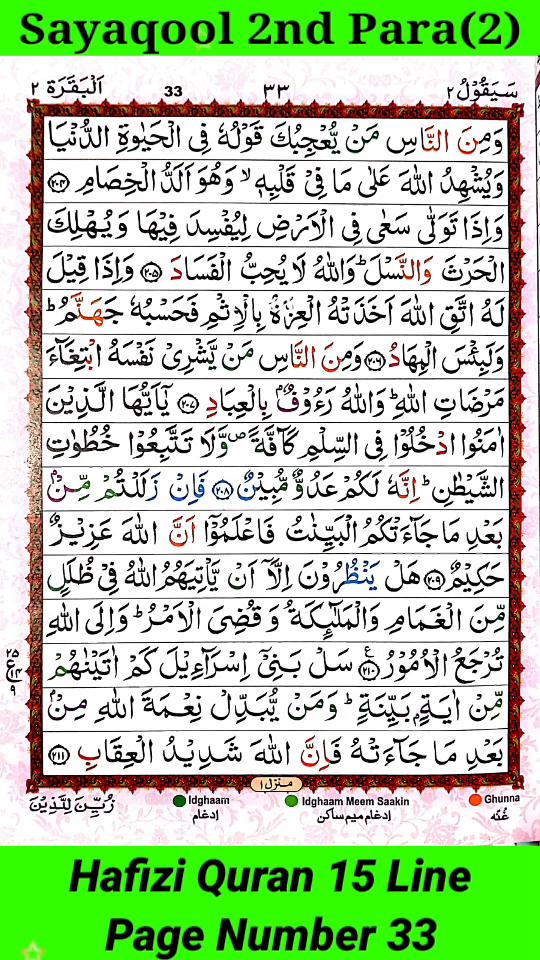 Sayaqool 2nd Para(2)
سَيَقُوْلُ ٢
٣٣
33
اَلْبَقَرَة ٢
وَمِنَ النَّاسِ مَنْ يُّعْجِبُكَ قَوْلُهٗ فِى الْحَيٰوةِ الدُّنْيَا
وَيُشْهِدُ اللّٰهَ عَلٰى مَا فِىْ قَلْبِهٖ ۙ وَهُوَ اَلَدُّ الْخِصَامِ ﴿٢٠٤﴾
وَاِذَا تَوَلّٰى سَعٰى فِى الْاَرْضِ لِيُفْسِدَ فِيْهَا وَيُهْلِكَ
الْحَرْثَ وَالنَّسْلَ ؕ وَاللّٰهُ لَا يُحِبُّ الْفَسَادَ ﴿٢٠٥﴾ وَاِذَا قِيْلَ
لَهُ اتَّقِ اللّٰهَ اَخَذَتْهُ الْعِزَّةُ بِالْاِثْمِ فَحَسْبُهٗ جَهَنَّمُ ؕ
وَلَبِئْسَ الْمِهَادُ ﴿٢٠٦﴾ وَمِنَ النَّاسِ مَنْ يَّشْرِىْ نَفْسَهُ ابْتِغَآءَ
مَرْضَاتِ اللّٰهِ ؕ وَاللّٰهُ رَءُوْفٌۢ بِالْعِبَادِ ﴿٢٠٧﴾ يٰٓاَيُّهَا الَّذِيْنَ
اٰمَنُوا ادْخُلُوْا فِى السِّلْمِ كَآفَّةً ۪ وَّلَا تَتَّبِعُوْا خُطُوٰتِ
الشَّيْطٰنِ ؕ اِنَّهٗ لَكُمْ عَدُوٌّ مُّبِيْنٌ ﴿٢٠٨﴾ فَاِنْ زَلَلْتُمْ مِّنْۢ
بَعْدِ مَا جَآءَتْكُمُ الْبَيِّنٰتُ فَاعْلَمُوْٓا اَنَّ اللّٰهَ عَزِيْزٌ
حَكِيْمٌ ﴿٢٠٩﴾ هَلْ يَنْظُرُوْنَ اِلَّاۤ اَنْ يَّاْتِيَهُمُ اللّٰهُ فِىْ ظُلَلٍ
مِّنَ الْغَمَامِ وَالْمَلٰٓئِكَةُ وَقُضِىَ الْاَمْرُ ؕ وَاِلَى اللّٰهِ
تُرْجَعُ الْاُمُوْرُ ﴿٢١٠﴾ ع سَلْ بَنِىْٓ اِسْرَآءِيْلَ كَمْ اٰتَيْنٰهُمْ
٢٥
ع
١٤
٩
مِّنْ اٰيَةٍۢ بَيِّنَةٍ ؕ وَمَنْ يُّبَدِّلْ نِعْمَةَ اللّٰهِ مِنْۢ
بَعْدِ مَا جَآءَتْهُ فَاِنَّ اللّٰهَ شَدِيْدُ الْعِقَابِ ﴿٢١١﴾
منزل ١
زُيِّنَ لِلَّذِيْنَ
Idghaam
ادغام
Idghaam Meem Saakin
ادغام ميم ساكن
Ghunna
غُنّه
Hafizi Quran 15 Line
Page Number 33